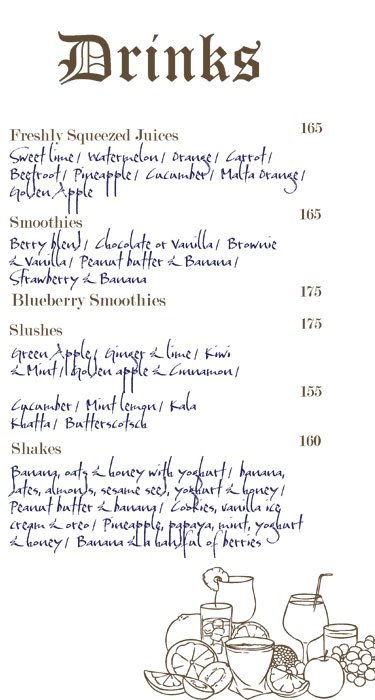 Drinks
Freshly Squeezed Juices 165
Sweet lime / Watermelon / Orange / Carrot /
Beetroot / Pineapple / Cucumber / Malta Orange /
Golden Apple
Smoothies 165
Berry blend / Chocolate or Vanilla / Brownie
& Vanilla / Peanut butter & Banana /
Strawberry & Banana
Blueberry Smoothies 175
Slushes 175
Green Apple / Ginger & lime / Kiwi
& Mint / Golden apple & Cinnamon /
155
Cucumber / Mint lemon / Kala
Khatta / Butterscotsch
Shakes 160
Banana, oats & honey with yoghurt / banana,
dates, almonds, sesame seed, yoghurt & honey /
Peanut butter & banang / Cookies, vanilla ice
cream & oreo / Pineapple, papaya, mint, yoghurt
& honey / Banana & a handful of berries